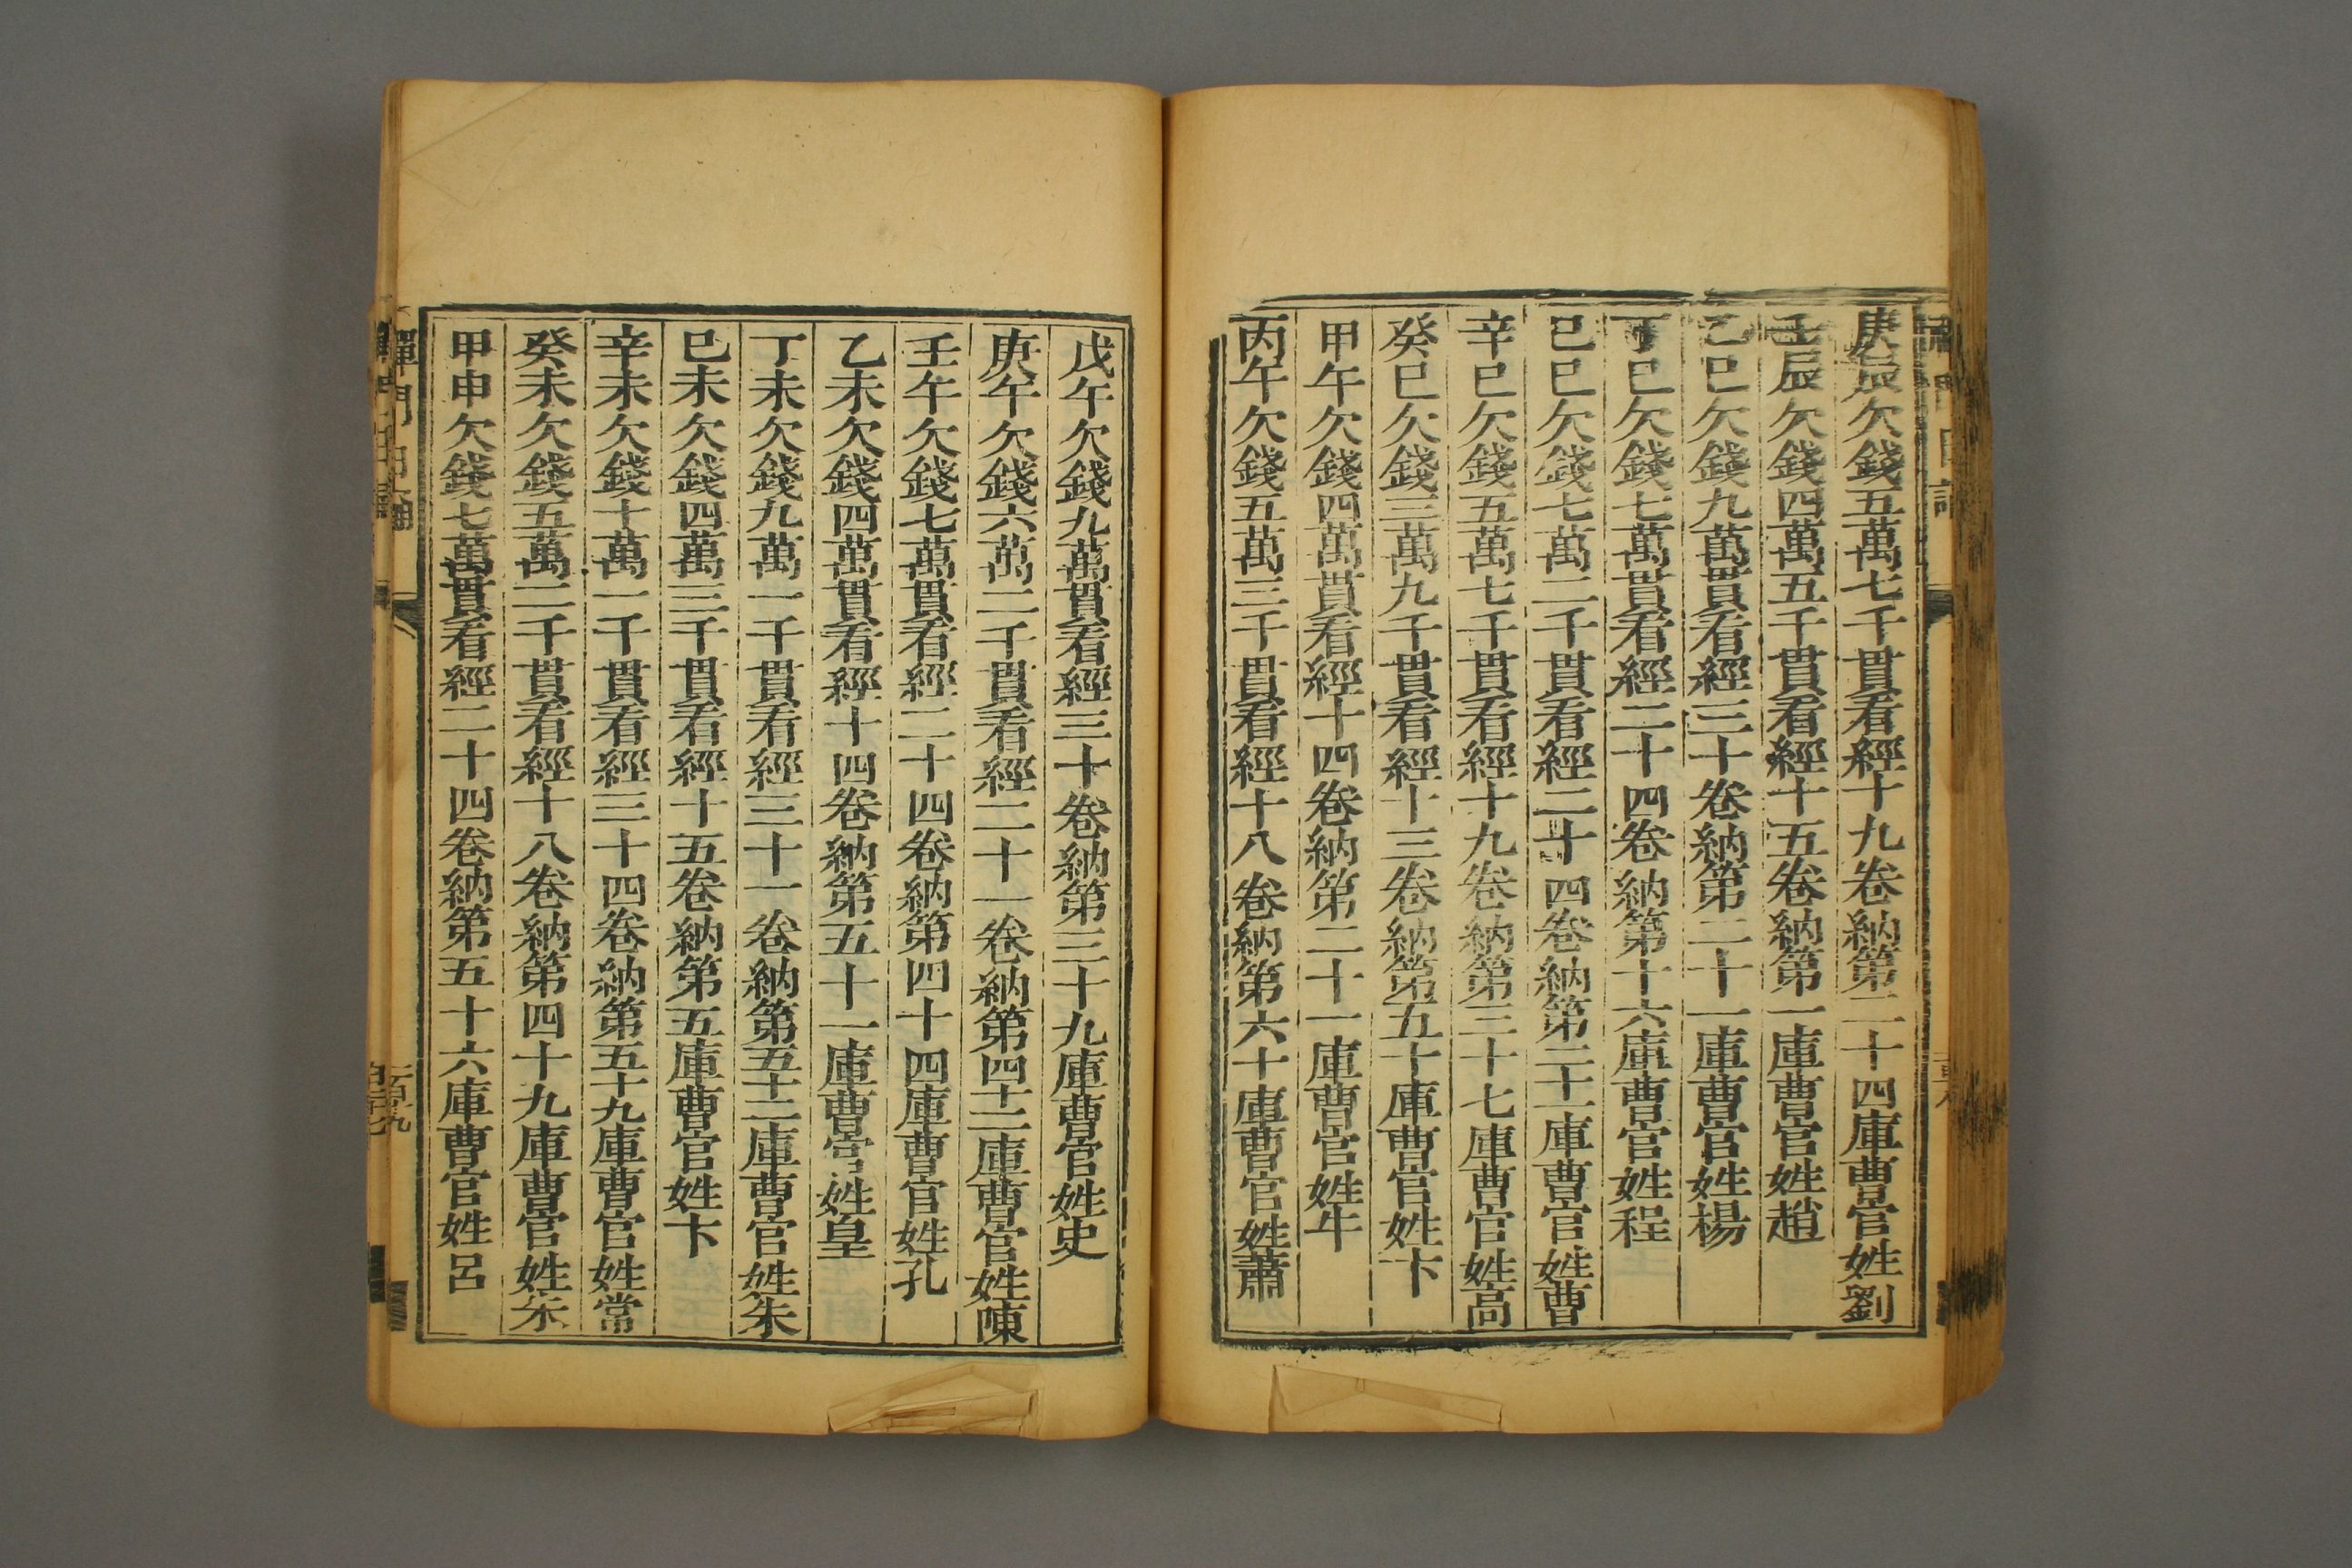 庚辰欠錢五萬七千貫看經十九卷納第二十四庫曹官姓劉
壬辰欠錢四萬五千貫看經十五卷納第一庫曹官姓趙
乙巳欠錢九萬貫看經三十卷納第二十一庫曹官姓楊
丁巳欠錢七萬貫看經二十四卷納第十六庫曹官姓程
巳巳欠錢七萬二千貫看經二十四卷納第三十一庫曹官姓曹
辛巳欠錢五萬七千貫看經十九卷納第三十七庫曹官姓高
癸巳欠錢三萬九千貫看經十三卷納第五十庫曹官姓卞
甲午欠錢四萬貫看經十四卷納第二十一庫曹官姓牛
丙午欠錢五萬三千貫看經十八卷納第六十庫曹官姓蕭
戊午欠錢九萬貫看經三十卷納第三十九庫曹官姓史
庚午欠錢六萬二千貫看經二十一卷納第四十二庫曹官姓陳
壬午欠錢七萬貫看經二十四卷納第四十四庫曹官姓孔
乙未欠錢四萬貫看經十四卷納第五十一庫曹官姓皇
丁未欠錢九萬一千貫看經三十一卷納第五十二庫曹官姓朱
巳未欠錢四萬三千貫看經十五卷納第五庫曹官姓卞
辛未欠錢十萬一千貫看經三十四卷納第五十九庫曹官姓常
癸未欠錢五萬二千貫看經十八卷納第四十九庫曹官姓朱
甲申欠錢七萬貫看經二十四卷納第五十六庫曹官姓呂
禪門日誦